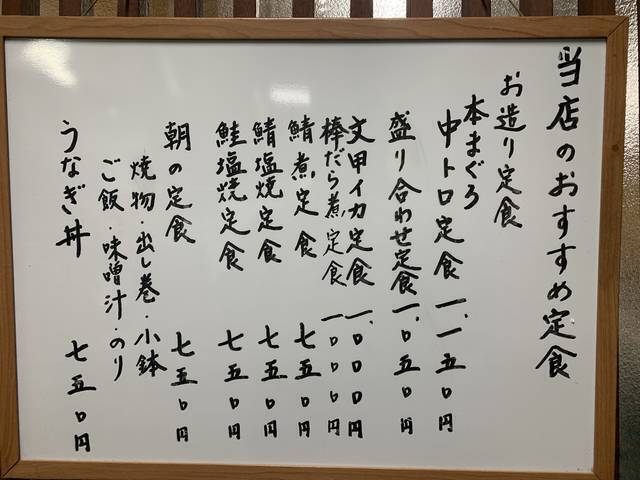 当店のおすすめ定食
お造り定食
本まぐろ
中トロ定食 一、一五〇円
盛り合わせ定食 一、〇五〇円
文甲イカ定食 一、〇〇〇円
棒だら煮定食 一、〇〇〇円
鯖煮定食 七五〇円
鯖塩焼定食 七五〇円
鮭塩焼定食 七五〇円
朝の定食 七五〇円
焼物・出し巻・小鉢
ご飯・味噌汁・のり
うなぎ丼 七五〇円